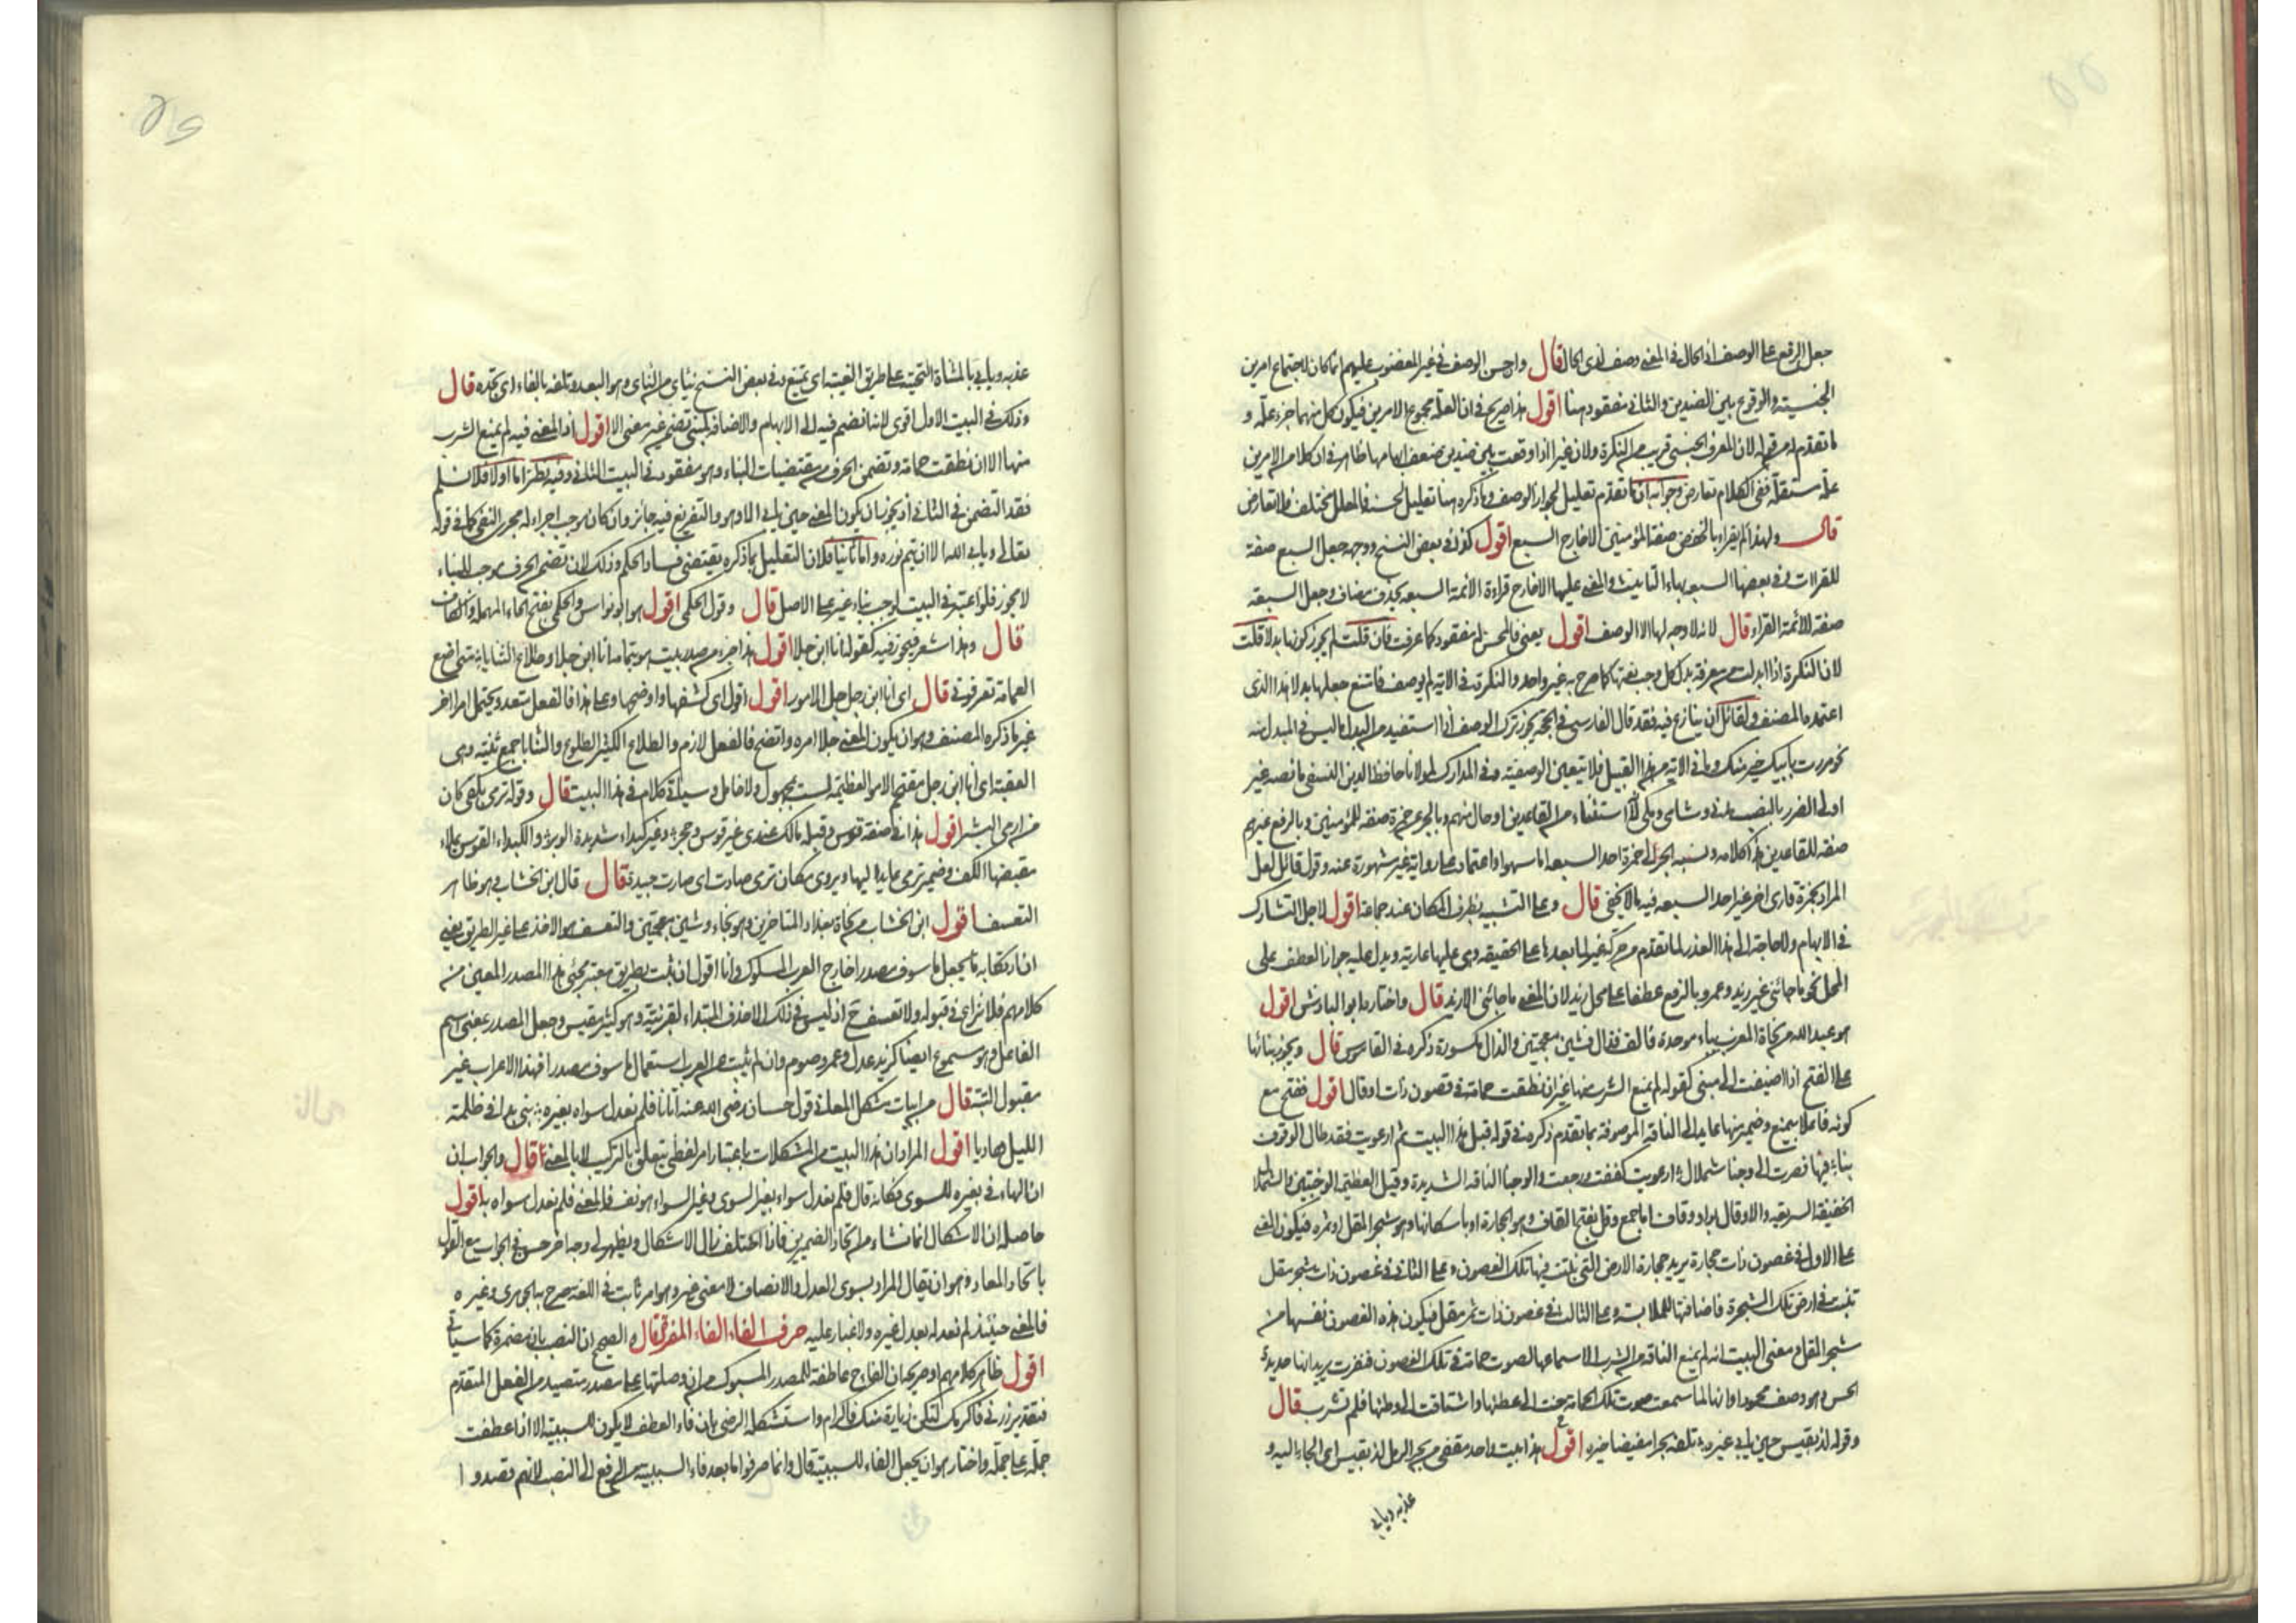 جعل الرفع على الوصف اذ الحال في المعنى وصف لذى الحال قال واحسن الوصف في غير المغضوب عليهم انما كان لاجتماع امرين
الجنسية والوقوع بين الضدين والثانى مفقود هنا اقول هذا صريح في ان العلة مجموع الامرين فيكون كل منهما جزء علة و
ما تقدم له من قوله لان المعرف الجنسى قريب من النكرة ولان غير اذا وقعت بين ضدين ضعف ابهامها ظاهر في ان كلا من الامرين
علة مستقلة ففى الكلام تعارض وجوابه ان ما تقدم تعليل لجواز الوصف وما ذكره هنا تعليل لحسنه فالمعلل مختلف فلا تعارض
قال ولهذا لم يقراء بالخفض صفة للمؤمنين الا خارج السبع اقول كذا في بعض النسخ ووجهه جعل السبع صفة
للقراات وفي بعضها السبعة بهاء التانيث والمعنى عليها الا خارج قراءة الائمة السبعة بحذف مضاف وجعل السبعة
صفة للائمة القراء قال لانه لا وجه لها الا الوصف اقول يعنى فالمحسن له مفقود كما عرفت فان قلت لم يجوز كونها بدلا قلت
لان النكرة اذا ابدلت من معرفة بدل كل وجب نعتها كما صرح به غير واحد والنكرة في الاية لم توصف فامتنع جعلها بدلا هذا الذى
اعتمده المصنف ولقائل ان ينازع فيه فقد قال الفارسى في الحجة يجوز ترك الوصف اذا استفيد من البدل ما ليس في المبدل منه
نحو مررت بابيك خير منك وما في الاية من هذا القبيل فلا يتعين الوصفية وفي المدارك لمولانا حافظ الدين النسفى ما نصه غير
اولى الضرر بالنصب مدنى وشامى وعلى لانه استثناء من القاعدين او حال منهم وبالجر عن حمزة صفة للمؤمنين وبالرفع غيرهم
صفة للقاعدين هذا كلامه ونسبة الجر الى حمزة احد السبعة اما سهوا واعتماد على رواية غير مشهورة عنه وقول قائل لعل
المراد بحمزة قارى اخر غير احد السبعة فيه ما لا يخفى قال وعلى التشبيه بظرف المكان عند جماعة اقول لاجل التشارك
في الابهام ولا حاجة الى هذا العذر لما تقدم من حركة غير لما بعدها على الحقيقة وهى عليها عارية ويدل عليه جواز العطف على
المحل نحو ما جائنى غير زيد وعمرو بالرفع عطفا على محل زيد لان المعنى ما جائنى الا زيد قال واختاره ابو الباذش اقول
هو عبد الله من نحاة المغرب بباء موحدة فالف فذال فشين معجمتين والذال مكسورة ذكره في القاموس قال ويجوز بنائها
على الفتح اذا اضيفت الى مبنى كقوله لم يمنع الشرب منها غير ان نطقت حمامة في غصون ذات اوقال اقول ففتح مع
كونه فاعلا بيمنع وضمير منها عايد الى الناقة الموصوفة بما تقدم ذكره في قوله قبل هذا البيت ثم ارعويت فقد طال الوقوف
بنا فيها فصرت الى وجنا شملال ارعويت كففت ورجعت والوجنا الناقة الشديدة وقيل العظيمة الوجنتين والشملال
الخفيفة السريعة والاوقال ... اما جمع وقل بفتح القاف وهو الحجارة او باسكانها وهو شجر المقل او ثمره فيكون المعنى
على الاول في غصون ذات حجارة يريد حجارة الارض التى نبتت فيها تلك الغصون وعلى الثانى في غصون ذات شجر مقل
تنبت في ارض تلك الشجرة فاضافتها للملابسة وعلى الثالث في غصون ذات ثمر مقل فيكون هذه الغصون نفسها من
شجر المقل ومعنى البيت انه لم يمنع الناقة من الشرب الا سماعها لصوت حمامة في تلك الغصون فنفرت يريد انها حديدة
الحس وهو وصف محمود او انها لما سمعت صوت تلك الحمامة حنت الى عطنها واشتاقت الى وطنها فلم تشرب قال
وقوله لذ بقيس حين يابى غيره تلفه بحرا مفيضا خيره اقول هذا بيت واحد مقفى من بحر الرمل لذ بقيس اى الجاء اليه و
عذبه ويابى
عذبه ويابى بالمثناة التحتية على طريق الغيبة اى يمتنع وفي بعض النسخ نياى من الناى وهو البعد وتلفه بالفاء اى تجده قال
وذلك في البيت الاول اقوى لانه انضم فيه الى الابهام والاضافة لمبنى تضمن غير معنى الا اقول اذ المعنى فيه لم يمنع الشرب
منها الا ان نطقت حمامة وتضمن الحرف من مقتضيات البناء وهو مفقود في البيت الثانى وفيه نظر اما اولا فلا نسلم
فقد التضمن في الثانى اذ يجوز ان يكون المعنى حين يابى الا هو والتفريع فيه جائز وان كان موجب اجراء له مجرى النفى كما في قوله
تعالى ويابى الله الا ان يتم نوره واما ثانيا فلان التعليل بما ذكره يقتضى فساد الحكم وذلك لان تضمن الحرف موجب للبناء
لا مجوز فلو اعتبر في البيت لوجب بناء غير على الاصل قال وقول الحكمى اقول هو ابو نواس والحكمى بفتح الحاء المهملة والكاف
قال وهذا شعر فيجوز فيه كقوله انا ابن جلا اقول هذا جزء من صدر بيت هو بتمامه انا ابن جلا وطلاع الثنايا متى اضع
العمامة تعرفونى قال اى انا ابن رجل جلى الامور اقول اقول اى كشفها واوضحها وعلى هذا فالفعل متعد ويحتمل امرا اخر
غير ما ذكره المصنف وهو ان يكون المعنى جلا امره واتضح فالفعل لازم والطلاع الكثير الطلوع والثنايا جمع ثنية وهى
العقبة اى انا ابن رجل مقتحم الامور العظيمة لست بمجهول ولا خامل وسياتى كلام في هذا البيت قال وقوله ترمى بكفى كان
من ارمى البشر اقول هذا في صفة قوس وقبله مالك عندى غير قوس وحجر وغير كبداء شديدة الوتر والكبداء القوس يملاء
مقبضها الكف وضمير ترمى عايد اليها ويروى مكان ترمى جادت اى صارت جيدة قال قال ابن الخشاب وهو ظاهر
التعسف اقول ابن الخشاب من نحاة بغداد المتاخرين وهو بخاء وشين معجمتين والتعسف هو الاخذ على غير الطريق يعنى
ان ارتكابه ما يجعل ما سوف مصدرا خارج العرب المسلوك وانا اقول ان ثبت بطريق معتبر مجئ هذا المصدر المعين من
كلامهم فلا نزاع في قبوله ولا تعسف ح اذ ليس في ذلك الا حذف المبتداء لقرينة وهو كثير مقيس وجعل المصدر بمعنى اسم
الفاعل وهو مسموع ايضا كزيد عدل وعمرو صوم وان لم يثبت من العرب استعمال ما سوف مصدرا فهذا الاعراب غير
مقبول البتة قال من ابيات مشكل المعانى قول حسان رضى الله عنه اتانا فلم نعدل سواه بغيره نبى بدا في ظلمة
الليل هاديا اقول المراد ان هذا البيت من المشكلات باعتبار امر لفظى يتعلق بالتركيب لا بالمعنى قال والجواب ان
ان الهاء في بغيره للسوى فكانه قال فلم نعدل سواه بغير السوى وغير السواء هو نفسه فالمعنى فلم نعدل سواه به اقول
حاصله ان الاشكال انما نشاء من اتحاد الضميرين فاذا اختلف زال الاشكال ويظهر لى وجه اخر حسن في الجواب مع القول
باتحاد المعاد وهو ان يقال المراد بسوى العدل والانصاف لا معنى غير وهو امر ثابت في اللغة صرح به الجوهرى وغيره
فالمعنى حينئذ لم نعدله بعدل غيره ولا غبار عليه حرف الفاء الفاء المفردة قال والصحيح ان النصب بان مضمرة كما سياتى
اقول ظاهر كلامهم او صريحه ان الفاء ح عاطفة للمصدر المسبوك من ان وصلتها على مصدر متصيد من الفعل المتقدم
فتقدير زرنى فاكرمك لتكن زيارة منك فاكرام واستشكله الرضى بان فاء العطف لا يكون للسببية الا اذا عطفت
جملة على جملة واختار هو ان يجعل الفاء للسببية قال وانما صرفوا ما بعد فاء السببية من الرفع الى النصب لانهم قصدوا